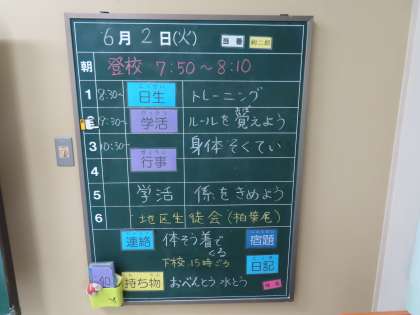 6月2日(火) 当番
朝 登校 7:50〜8:10
1 8:30〜 日生 トレーニング
2 9:30〜 学活 ルールを覚えよう
3 10:30〜 行事 身体そくてい
4
5 学活 係をきめよう
6 地区生徒会(柏葉尾)
連絡 体そう着で 宿題
くる
下校 15時ごろ 日記
持ち物 おべんとう 水とう